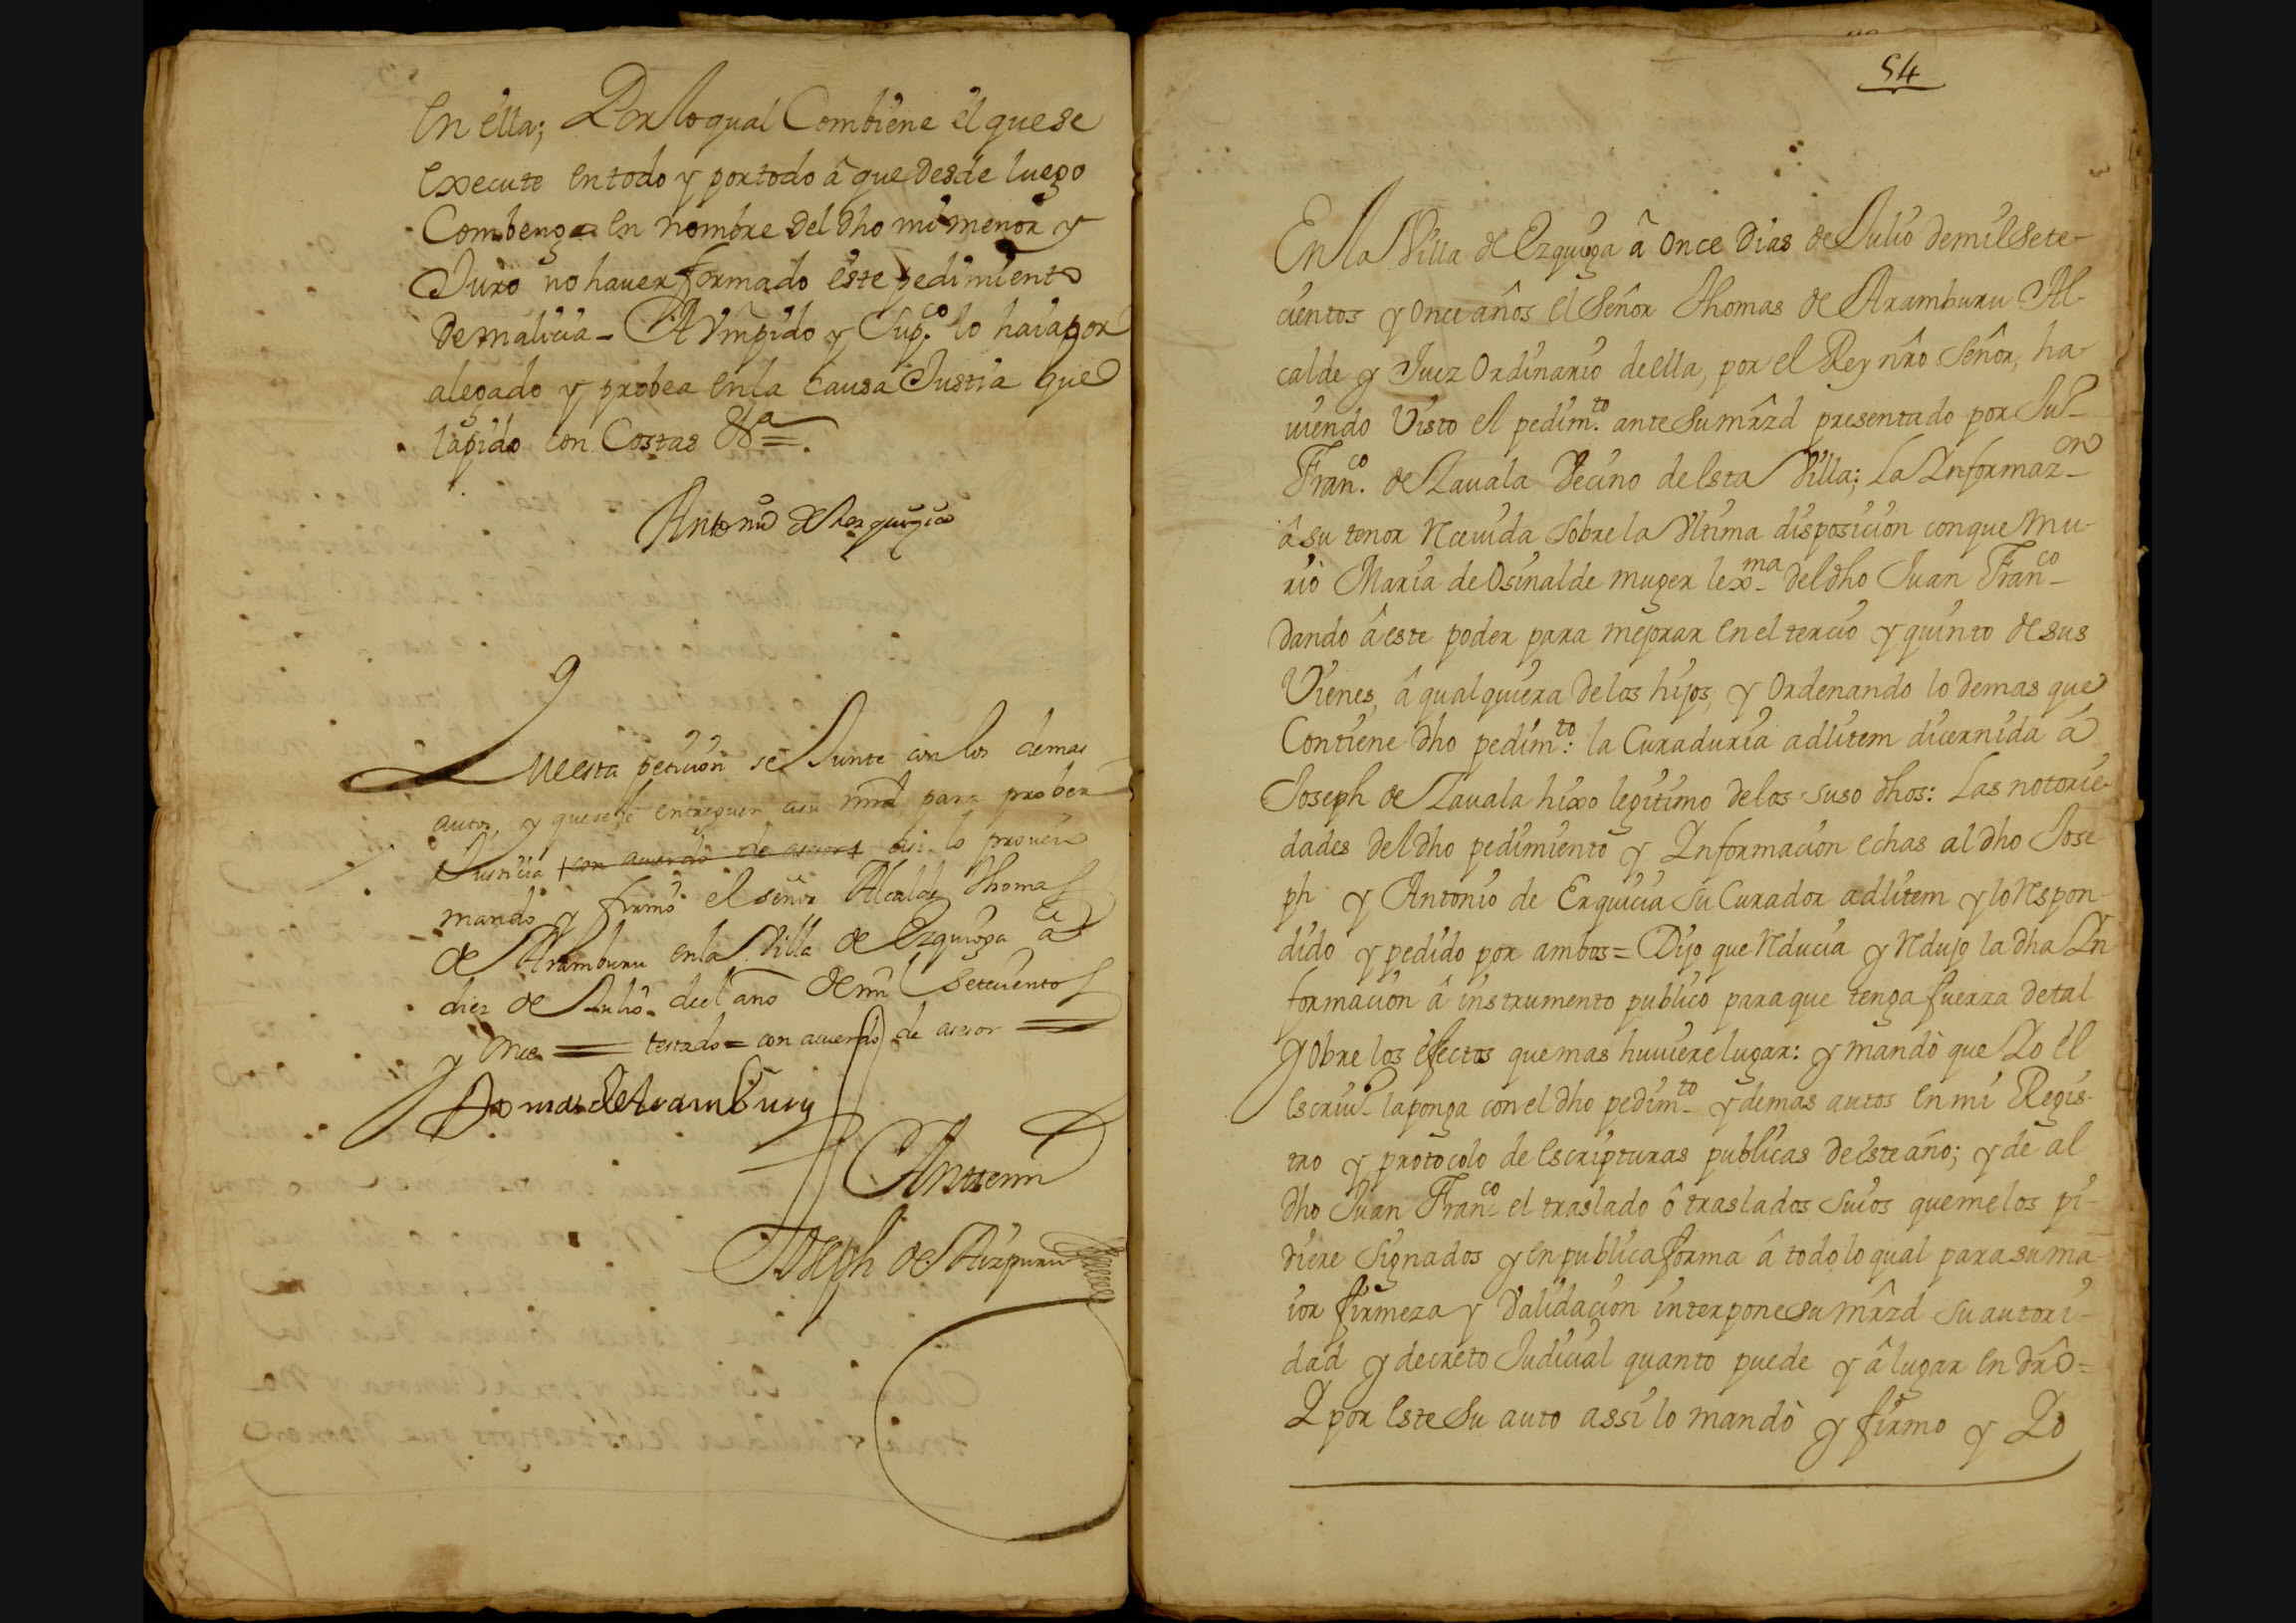 en ella; Por lo qual Combiene el que se
execute en todo y por todo â que desde luego
Combenga en nombre del dho mi menor y
Juro no haver formado este pedimiento
de malicia - A Vm pido y Supco lo haia por
alegado y probea en la causa Justia que
la pido con Costas &a =.
Antonio de Erquizia
que esta peticion se Junte con los demas
autos, y que se le entreguen a su mrd para prober
Justicia con acuerdo de asesor asi lo proueio
mando y firmo el señor Alcalde Thomas
de Aramburu en la Villa de Ezquioga a
diez de Julio del año de mil Setecientos
y once = testado = con acuerdo de asesor =
Tomas de Aramburu
Antemi
Joseph de Aizpuru
54
En la Villa de Ezquioga â once dias de Julio de mil Sete-
cientos y once años el Señor Thomas de Aramburu Al-
calde y Juez Ordinario de ella, por el Rey nro Señor, ha-
uiendo Visto el pedimto. ante Su mrzd presentado por Ju-
Franco. de Zauala Vecino de esta Villa; La Informazon
â su tenor Receuida Sobre la Vltima disposicion con que mu-
riò Maria de Osinalde muger lexma del dho Juan Franco
dando â este poder para mejorar en el tercio y quinto de sus
Vienes, â qualquiera de los hijos, y Ordenando lo demas que
Contiene dho pedimto: la Curaduria adlitem dicernida â
Joseph de Zauala hixo legitimo de los suso dhos: Las notorie-
dades del dho pedimiento y Informacion echas al dho Jose
ph y Antonio de Erquicia Su Curador adlitem y lo Respon-
dido y pedido por ambos = Dijo que Reducia y Redujo la dha In
formacion â instrumento publico para que tenga fuerza de tal
y Obre los efectos que mas huuiere lugar: y mandò que Yo el
escriuo la ponga con el dho pedimto y demas autos en mi Regis-
tro y protocolo de escripturas publicas de este año; y dè al
dho Juan Franco el traslado ô traslados Suios que me los pi-
diere Signados y en publica forma â todo lo qual para su ma
ior firmeza y Validacion interpone Su mrzd Su autori-
dad y decreto Judicial quanto puede y â lugar en dro =
Y por este Su auto assi lo mandò y firmo y Yo